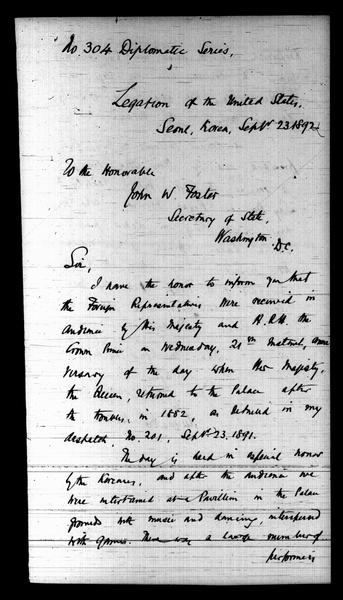 No. 304 Diplomatic Series.
Legation of the United States,
Seoul, Korea, Septbr 23 1892
To the Honorable
John W. Foster
Secretary of State,
Washington
D.C.
Sir,
I have the honor to inform you that
the Foreign Representatives were received in
Audience by His Majesty and H.R.H. the
Crown Prince on Wednesday, 21st instant, anni
versary of the day when Her Majesty,
the Queen, returned to the Palace after
the troubles, in 1882, as detailed in my
despatch No. 201, Septbr 23. 1891.
The day is held in especial honor
by the Koreans, and after the audience we
were entertained at a Pavillion in the Palace
grounds with music and dancing, interspersed
with games. There was a large number of
performers